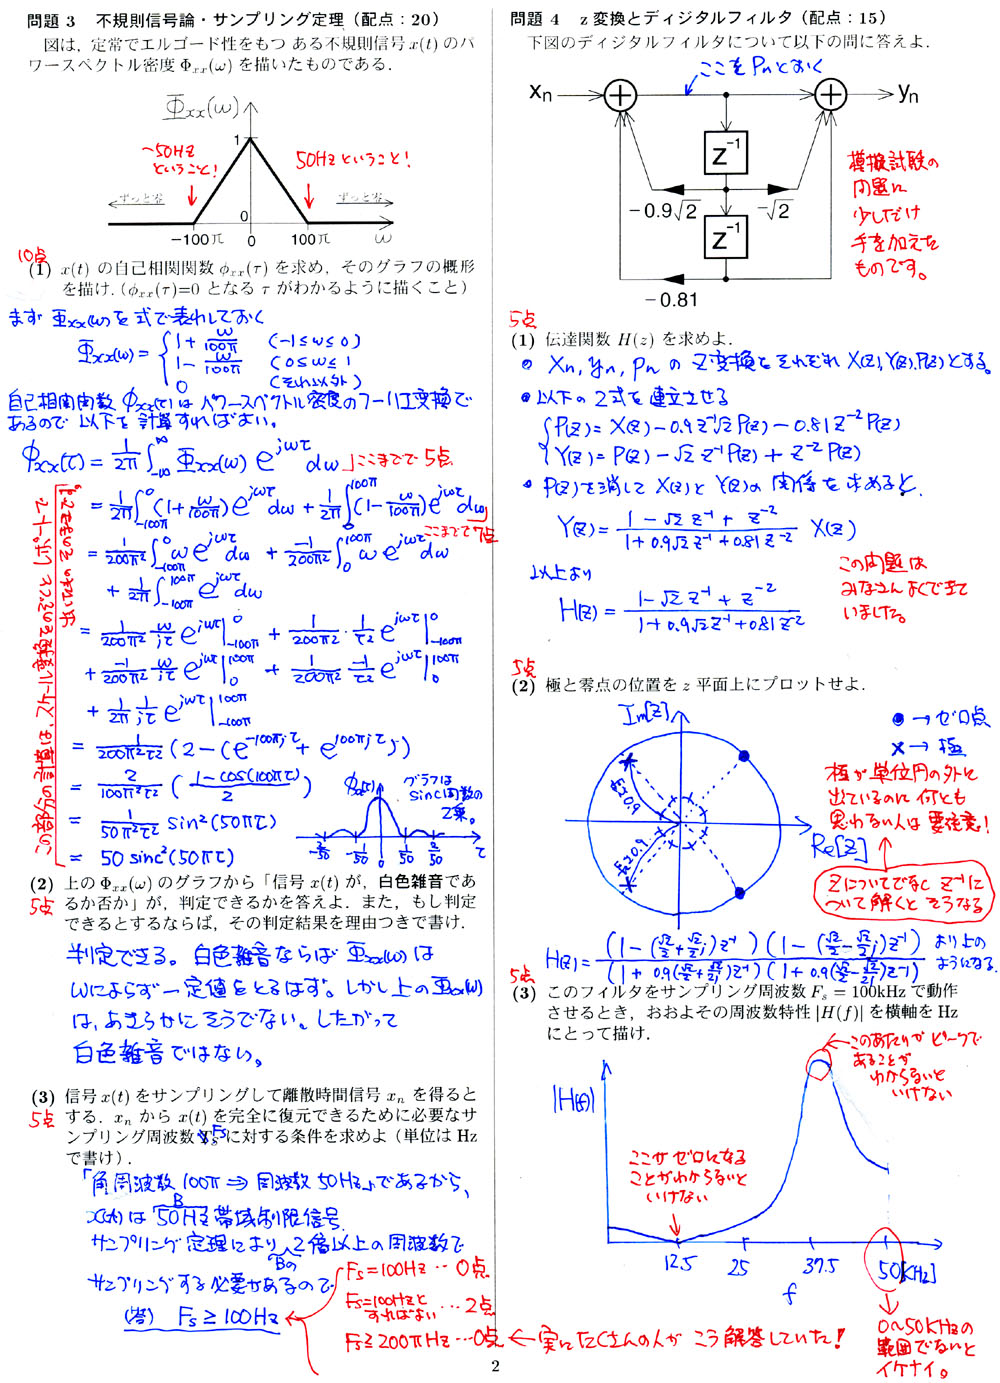 問題 3　不規則信号論・サンプリング定理（配点：20）
図は，定常でエルゴード性をもつ ある不規則信号 x(t) のパ
ワースペクトル密度 Φxx(ω) を描いたものである．
Φxx(ω)
1
-50Hz
ということ!
50Hzということ!
ずっと零
ずっと零
0
-100π
0
100π
ω
10点
(1) x(t) の自己相関関数 φxx(τ) を求め，そのグラフの概形
を描け．（φxx(τ)=0 となる τ がわかるように描くこと）
まず Φxx(ω)を式で表わしておく
Φxx(ω) = { 1 + ω/100π (-1≤ω≤0)
1 - ω/100π (0≤ω≤1
0 (それ以外)
自己相関関数 φxx(τ)は パワースペクトル密度のフーリエ変換で
あるので 以下を計算すればよい。
φxx(τ) = 1/2π ∫-∞^∞ Φxx(ω) e^jωτ dω 」ここまでで 5点
= 1/2π ∫-100π^0 (1+ω/100π)e^jωτ dω + 1/2π ∫0^100π (1-ω/100π)e^jωτ dω」
ここまでで7点
= 1/200π² ∫-100π^0 ω e^jωτ dω + -1/200π² ∫0^100π ω e^jωτ dω
+ 1/2π ∫-100π^100π e^jωτ dω
= 1/200π² ω/jτ e^jωτ |-100π^0 + 1/200π² · 1/τ² e^jωτ |-100π^0
+ -1/200π² ω/jτ e^jωτ |0^100π + 1/200π² -1/τ² e^jωτ |0^100π
+ 1/2π 1/jτ e^jωτ |-100π^100π
= 1/200π²τ² (2-(e^-100πjτ + e^100πjτ))
= 2/100π²τ² (1-cos(100πτ)/2)
= 1/50π²τ² sin²(50πτ)
= 50 sinc²(50πτ)
この部分の計算は、スケール変換をのぞくと レポートで
φxx(τ)
グラフは
sinc関数の
2乗。
-2/50 -1/50 0 1/50 2/50 τ
(2) 上の Φxx(ω) のグラフから「信号 x(t) が，白色雑音であ
るか否か」が，判定できるかを答えよ．また，もし判定
できるとするならば，その判定結果を理由つきで書け．
5点
判定できる。白色雑音ならば Φxx(ω) は
ωによらず一定値をとるはず。しかし上のΦxx(ω)
は、あきらかにそうでない。したがって
白色雑音ではない。
(3) 信号 x(t) をサンプリングして離散時間信号 xn を得ると
する．xn から x(t) を完全に復元できるために必要なサ
ンプリング周波数 Fs に対する条件を求めよ（単位は Hz
で書け）．
5点
「角周波数 100π ⇒ 周波数 50Hz」であるから、
B
x(t) は 50Hz 帯域制限信号
サンプリング定理により 2倍以上の周波数で
Bの
サンプリングする必要があるので
(答) Fs ≥ 100Hz
Fs=100Hz … 0点
Fs=100Hzと
すればよい … 2点
Fs≥200πHz … 0点 ← 実にたくさんの人が こう解答していた!
問題 4　z 変換とディジタルフィルタ（配点：15）
下図のディジタルフィルタについて以下の問に答えよ．
ここをPnとおく
xn
+
+
yn
z-1
-0.9√2
-√2
z-1
-0.81
模擬試験の
問題に
少しだけ
手を加えた
ものです。
5点
(1) 伝達関数 H(z) を求めよ．
● xn, yn, pn の Z変換をそれぞれ X(z), Y(z), P(z)とする。
● 以下の2式を連立させる
{ P(z) = X(z) - 0.9z^-1√2 P(z) - 0.81 z^-2 P(z)
Y(z) = P(z) - √2 z^-1 P(z) + z^-2 P(z)
● P(z)を消して X(z)と Y(z)の 関係を求めると、
Y(z) = 1-√2z^-1 + z^-2 / 1+0.9√2z^-1+0.81z^-2 X(z)
以上より
H(z) = 1-√2z^-1 + z^-2 / 1+0.9√2z^-1+0.81z^-2
この問題は
みなさんよくできて
いました。
5点
(2) 極と零点の位置を z 平面上にプロットせよ．
Im[z]
● → ゼロ点
× → 極
長さ0.9
長さ0.9
Re[z]
極が単位円の外に
出ているのに何とも
思わない人は要注意!
zについてでなく z^-1に
ついて解くとそうなる
H(z) = (1-(√2/2+√2/2j)z^-1)(1-(√2/2-√2/2j)z^-1) / (1+0.9(√2/2+√2/2j)z^-1)(1+0.9(√2/2-√2/2j)z^-1) より上の
ようになる.
5点
(3) このフィルタをサンプリング周波数 Fs = 100kHz で動作
させるとき，おおよその周波数特性 |H(f)| を横軸を Hz
にとって描け．
このあたりがピークで
あることが
わからないと
いけない
|H(f)|
ここがゼロになる
ことがわからないと
いけない
12.5 25 37.5 50[kHz]
f
0～50kHzの
範囲でないと
イケナイ。
2